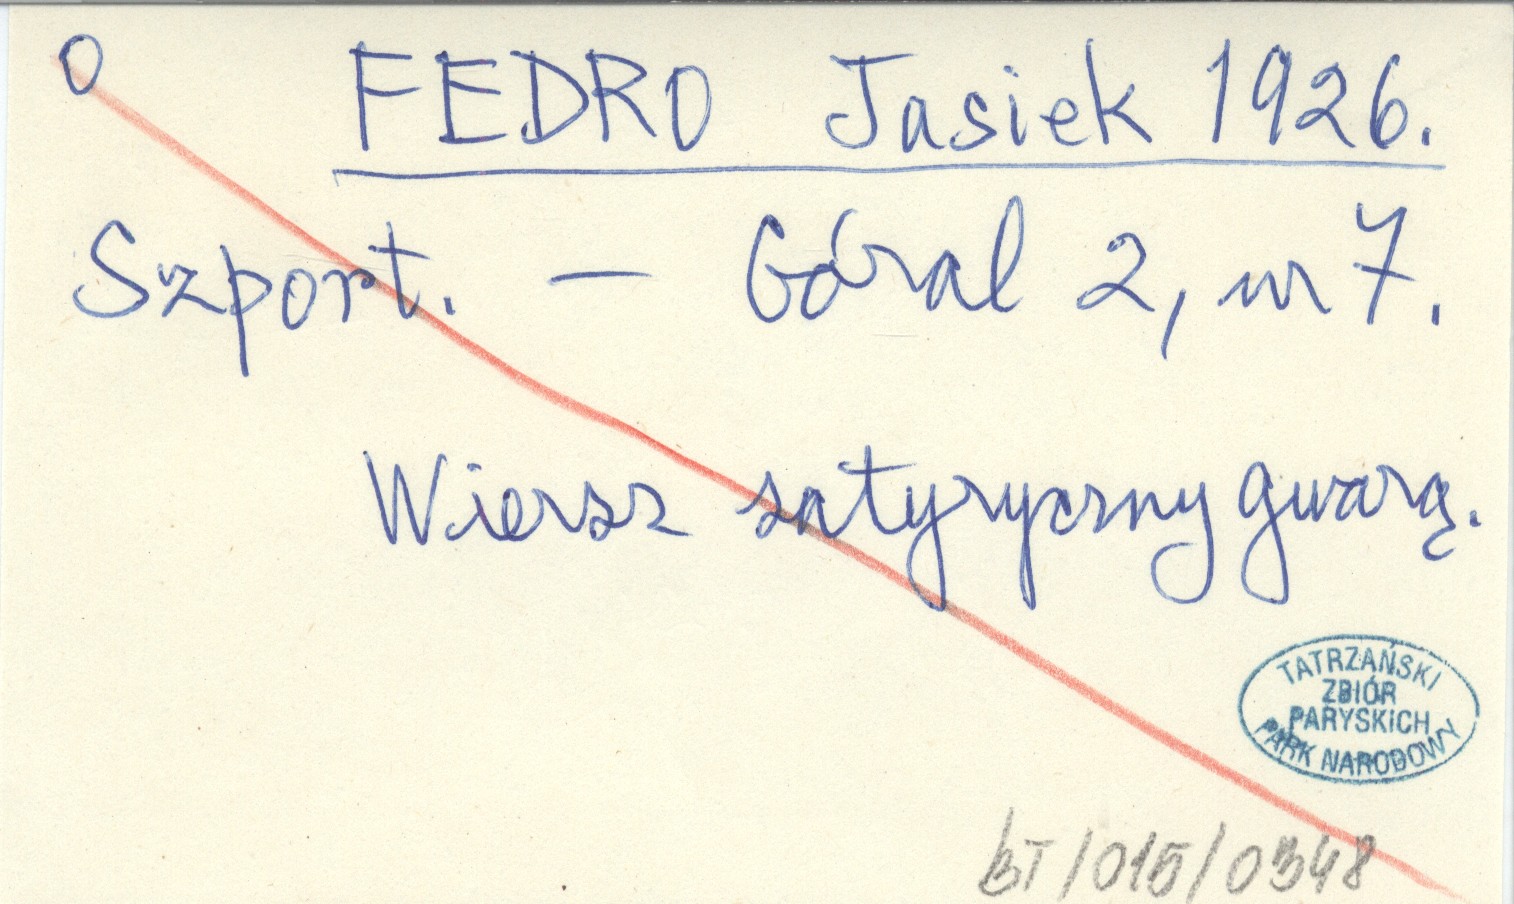 O FEDRO Jasiek 1926.
Szport. — Góral 2, nr 7.
Wiersz satyryczny gwarą.
TATRZAŃSKI
ZBIÓR
PARYSKICH
PARK NARODOWY
BT/015/0348